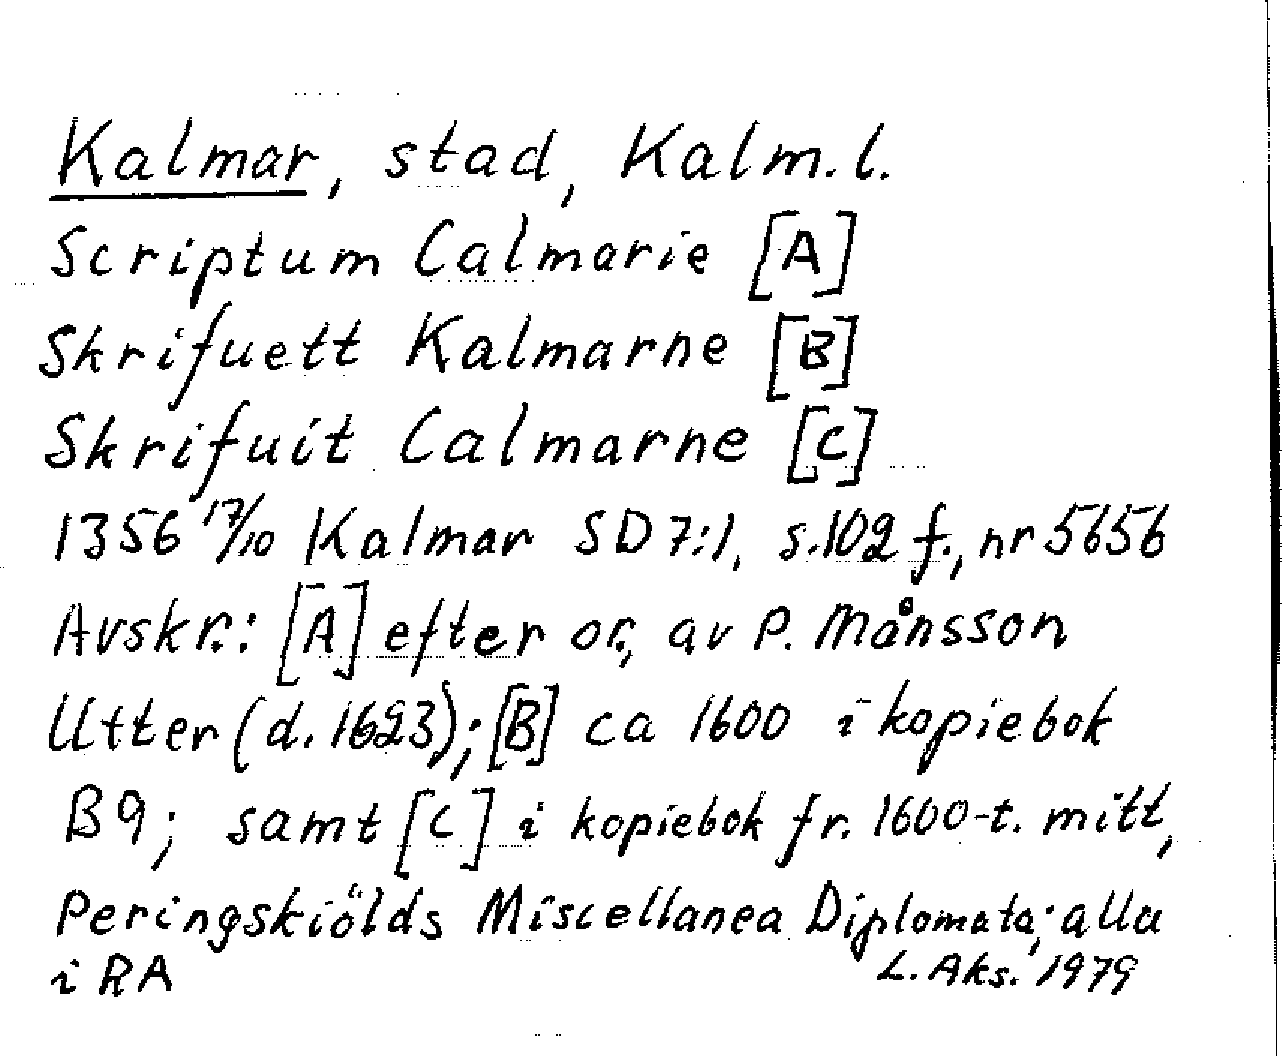 Kalmar, stad, Kalm.l.
Scriptum Calmarie [A]
Skrifuett Kalmarne [B]
Skrifuit Calmarne [C]
1356 17/10 Kalmar SD 7:1, s.102 f., nr 5656
Avskr.: [A] efter or., av P. Månsson
Utter (d. 1623); [B] ca 1600 i kopiebok
B9; samt [C] i kopiebok fr. 1600-t. mitt,
Peringskiölds Miscellanea Diplomata; alla
i RA L. Aks. 1979